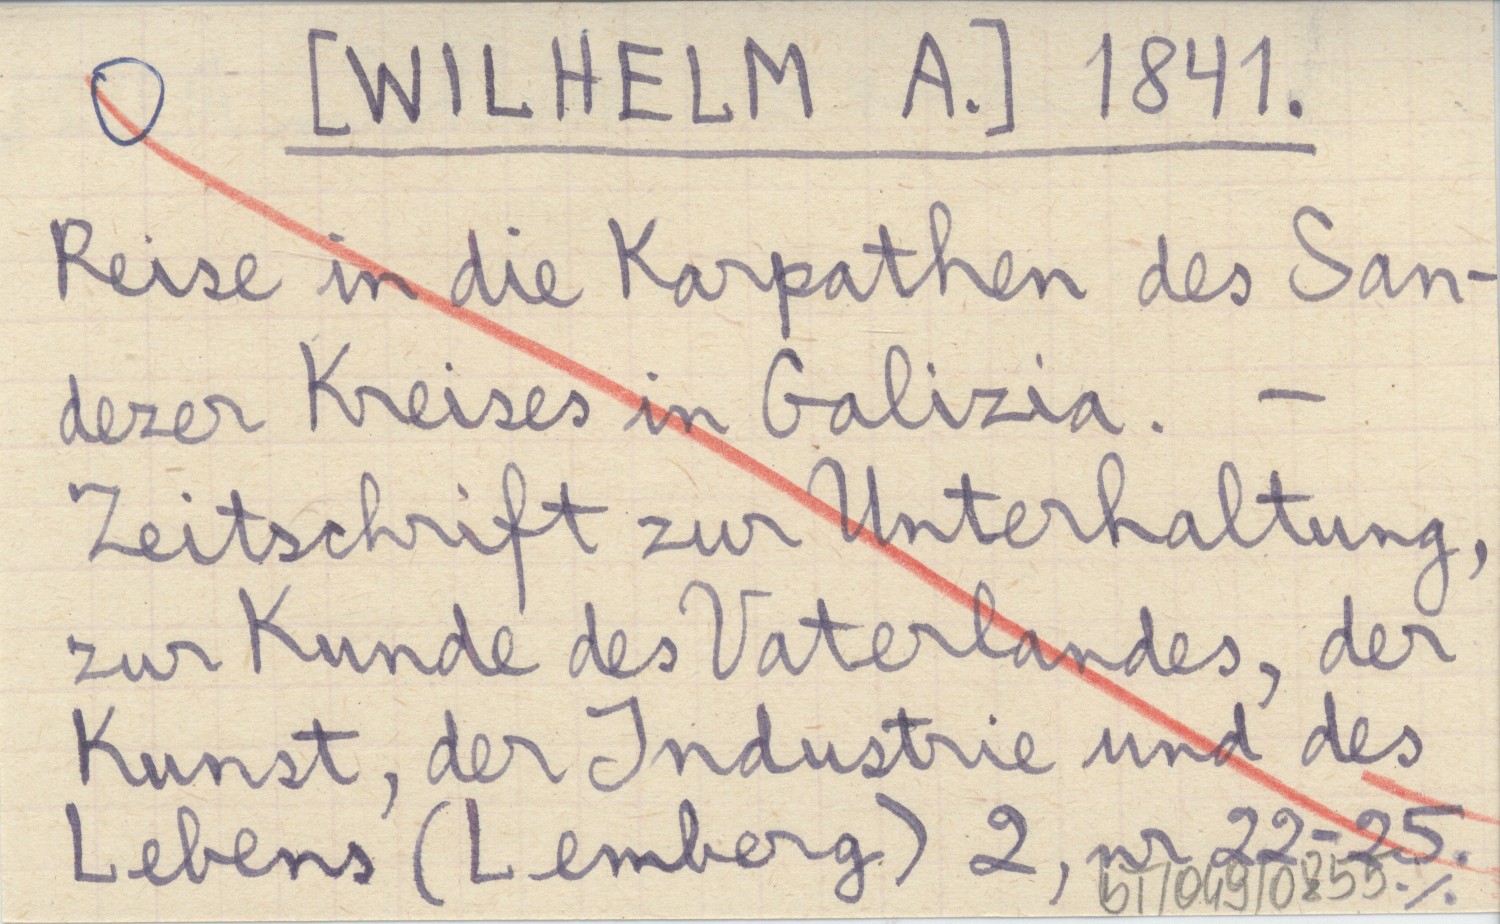 [WILHELM A.] 1841.
Reise in die Karpathen des San-
dezer Kreises in Galizia. –
Zeitschrift zur Unterhaltung,
zur Kunde des Vaterlandes, der
Kunst, der Industrie und des
Lebens (Lemberg) 2, nr 22-25.
b1/049/0855 ./.